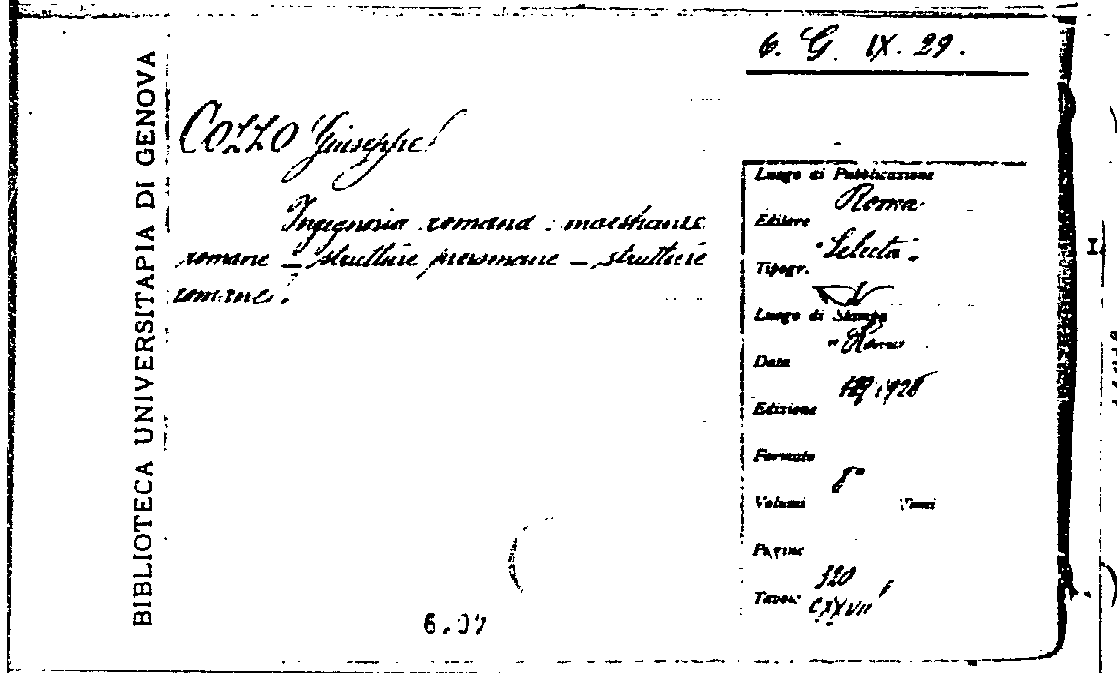 6. G. IX. 29.
BIBLIOTECA UNIVERSITAPIA DI GENOVA
COZZO Giuseppe
Ingegneria romana : maestranze
romane _ strutture preromane _ strutture
romane.
Luogo di Pubblicazione
Roma
Editore
"Selecta"
Tipogr.
Luogo di Stampa
Roma
Data
1928
Edizione
Formato
8°
Volumi Tomi
Pagine
320
Tavole CXXVII
6.07